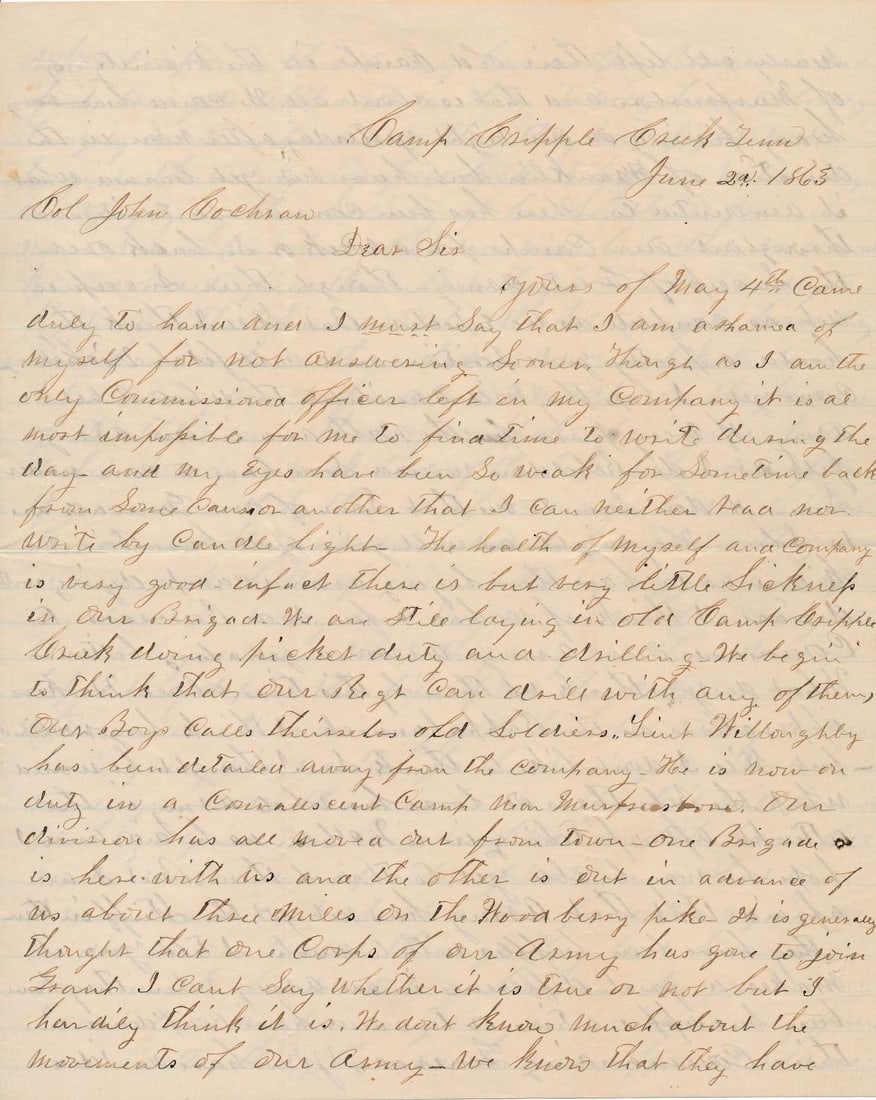 Camp Cripple Creek Tenn
June 2d. 1863
Col John Cochran
Dear Sir
Yours of May 4th Came
duly to hand and I must Say that I am ashamed of
myself for not answering Sooner, Though as I am the
only Commissioned officer left in my Company it is al
most impossible for me to find time to write during the
day - and my Eyes have been So weak for Sometime back
from Some Cause or another that I can neither read nor
write by Candle light - The health of myself and Company
is very good - infact there is but very little Sickness
in Our Brigad. We are still laying in old Camp Cripple
Creek doing picket duty and drilling - We begin
to think that Our Regt Can drill with any of them,
Our Boys Calls theirselvs old Soldiers, Lieut Willoughby
has been detailed away from the company - He is now on -
duty in a Convalescent Camp near Murfreesboro. Our
division has all moved out from town - one Brigade
is here with us and the other is out in advance of
us about three Miles on the Woodberry pike - It is generally
thought that one Corps of our Army has gone to join
Grant I cant Say whether it is true or not but I
hardily think it is. We dont know much about the
movements of our Army - We know that they have